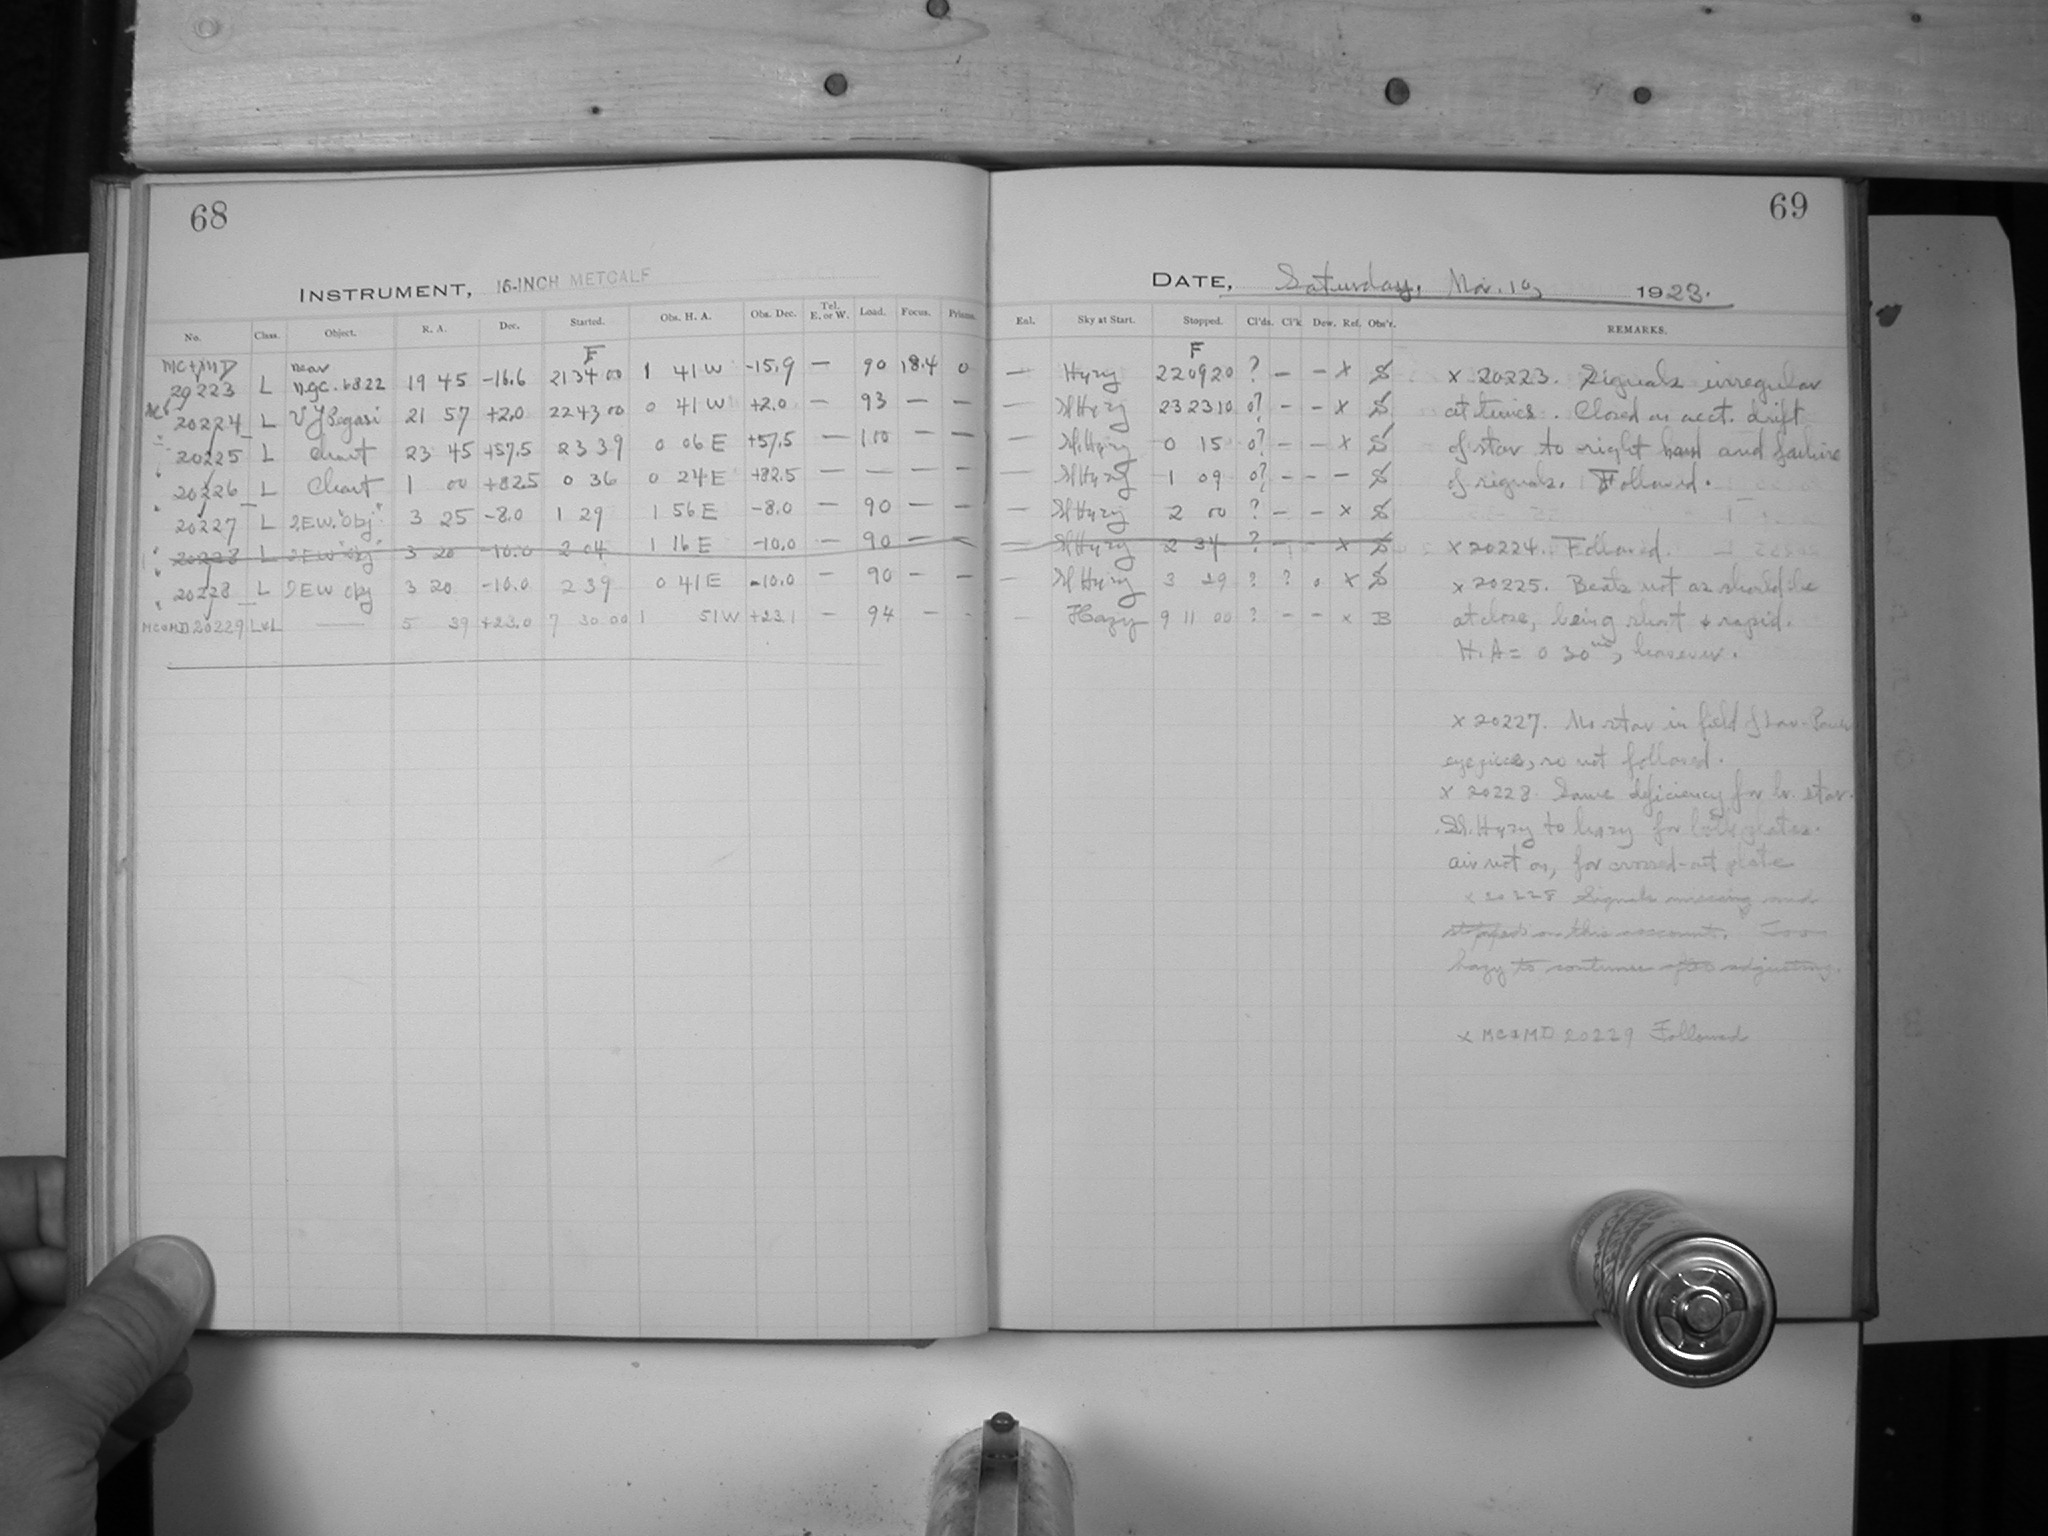 68
INSTRUMENT, 16-INCH METCALF
No. Class. Object. R. A. Dec. Started. Obs. H. A. Obs. Dec. Tel. E. or W. Load. Focus. Prisms.
F
MC & MD near
20223 L N.G.C. 6822 19 45 -16.6 21 34 00 1 41 W -15.9 — 90 18.4 0
20224 L 21 57 +2.0 22 43 00 0 41 W +2.0 — 93 — —
20225 L Chart 23 45 +57.5 23 39 0 06 E +57.5 — 100 — —
20226 L Chart 1 00 +82.5 0 36 0 24 E +82.5 — — — —
20227 L "Obj" 3 25 -8.0 1 29 1 56 E -8.0 — 90 — —
20228 L "Obj" 3 20 -10.0 2 04 1 16 E -10.0 — 90 — —
20228 L Obj 3 20 -10.0 2 39 0 41 E -10.0 — 90 — —
MC & MD 20229 L & L — 5 39 +23.0 7 30 00 1 51 W +23.1 — 94 — -
69
DATE, Saturday, 10, 1923.
Enl. Sky at Start. Stopped. Cl'ds. Cl'k Dew. Ref. Obs'r. REMARKS.
F
— Hyzy 22 09 20 ? — — x S
— Sl Hyzy 23 23 10 0? — — x S
— Sl Hyzy 0 15 0? — — x S
— Sl Hyzy 1 09 0? — — — S
— Sl Hyzy 2 00 ? — — x S
— Sl Hyzy 2 34 ? — — x S
— Sl Hyzy 3 29 ? ? 0 x S
— Hazy 9 11 00 ? — — x B
x 20223. Signals irregular
at times. Closed on acct. drift
of star to right hand and failure
of signals. Followed.
x 20224. Followed.
x 20225. Beats not as should be
at close, being short & rapid.
H.A = 0 30m, however.
x 20227. No star in field of Low-Power
eyepiece, so not followed.
x 20228. Same deficiency for br. star.
Sl. Hyzy to hazy for both plates.
air not on, for crossed-out plate
x 20228 Signals missing and
stopped on this account. Too
hazy to continue after adjusting.
x MC & MD 20229 Followed